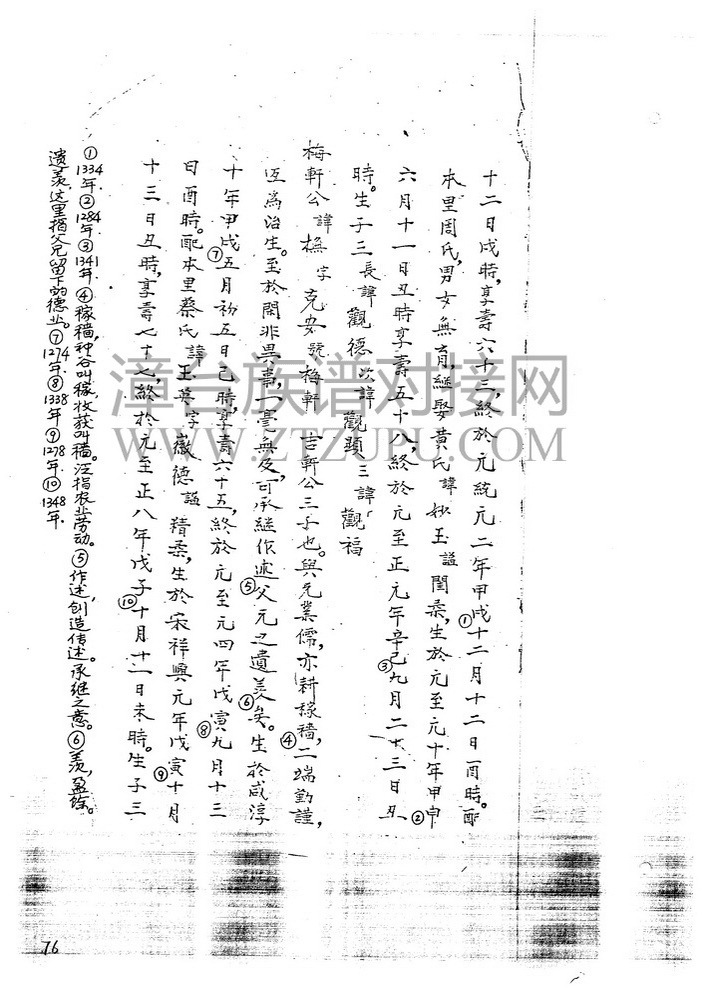 十二日戌時,享壽六十三,終於元統元二年甲戌①十二月十二日酉時。配
本里周氏,男女無育,繼娶黃氏諱妙玉謚閨柔,生於元至元十年甲申②
六月十一日丑時享壽五十八,終於元至正元年辛巳③九月二十三日丑
時。生子三長諱觀德次諱觀顯三諱觀福
梅軒公諱橅字克安號梅軒吉軒公三子也。與兄業儒,亦耕稼穡④,二端勤謹,
互為治生。至於閑非異事,一毫無及,可承継作述⑤父兄之遺羨⑥矣。生於咸淳
十年甲戌⑦五月初五日巳時,享壽六十五,終於元至元四年戊寅⑧九月十三
日酉時。配本里蔡氏諱玉英字徽德謚精柔,生於宋祥興元年戊寅⑨十月
十三日丑時,享壽七十七,終於元至正八年戊子⑩十月十一日未時。生子三
①1334年②1284年③1341年④稼穑,种谷叫稼,收获叫穑。泛指农业劳动。⑤作述,创造传述。承继之意。⑥羨,盈馀。
遗羨这里指父兄留下的德业。⑦1274年⑧1338年⑨1278年⑩1348年
76
漳台族谱对接网
WWW.ZTZUPU.COM